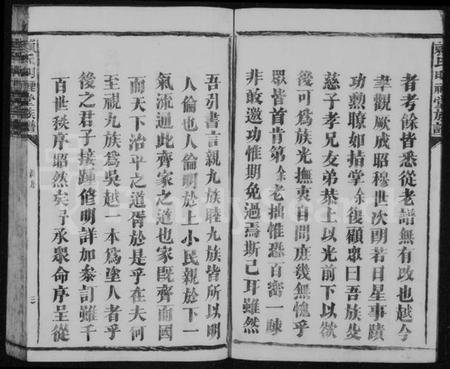 者考餘皆悉從老譜無有改也越今
聿觀厥成昭穆世次朗若日星事蹟
功勲暸如指掌余復顧眾曰吾族父
慈子孝兄友弟恭上以光前下以欲
後可為族光撫衷自問庶幾無愧乎
眾皆首肯第余老拙惟恐百密一疎
非敢邀功惟期免過焉斯已耳雖然
吾引書言親九族睦九族皆所以明
人倫也人倫明於上小民親於下一
氣流通此齊家之道也家既齊而國
而天下治平之道胥於是乎在夫何
至視九族為吳越一本為塗人者乎
後之君子接踵修明詳加叅訂雖千
百世秩序昭然矣予承眾命序呈從